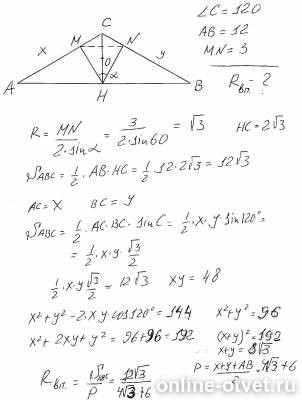 ∠C = 120
AB = 12
MN = 3
Rвп. - ?
C
M
N
x
y
O
α
A
H
B
R = MN / (2·sinα) = 3 / (2·sin60) = √3
HC = 2√3
S_ABC = 1/2 · AB · HC = 1/2 · 12 · 2√3 = 12√3
AC = x BC = y
S_ABC = 1/2 · AC · BC · sinC = 1/2 · x · y · sin120° =
= 1/2 · x · y · √3/2
1/2 · x · y √3/2 = 12√3 xy = 48
x² + y² - 2·x·y·cos120° = 144 x² + y² = 96
x² + 2xy + y² = 96 + 96 = 192 (x+y)² = 192
x+y = 8√3
Rвп. = S_ABC / P = 12√3 / (4√3 + 6)
P = (x+y+AB) / 2 = 4√3 + 6
online-otvet.ru